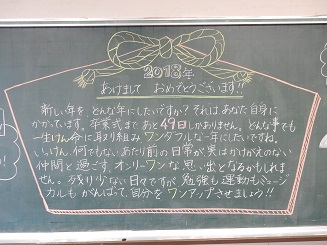 2018年
あけまして おめでとうございます!!
新しい年を、どんな年にしたいですか?それはあなた自身に
かかっています。卒業式まであと49日しかありません。どんな事でも
一生けん命に取り組み ワンダフルな一年にしたいですね。
いっけん 何でもないあたり前の日常が、実はかけがえのない
仲間と過ごす、オンリーワンな思い出となるかもしれま
せん。残り少ない日々ですが 勉強も運動もミュージ
カルも がんばって、自分を ワンアップさせましょう!!